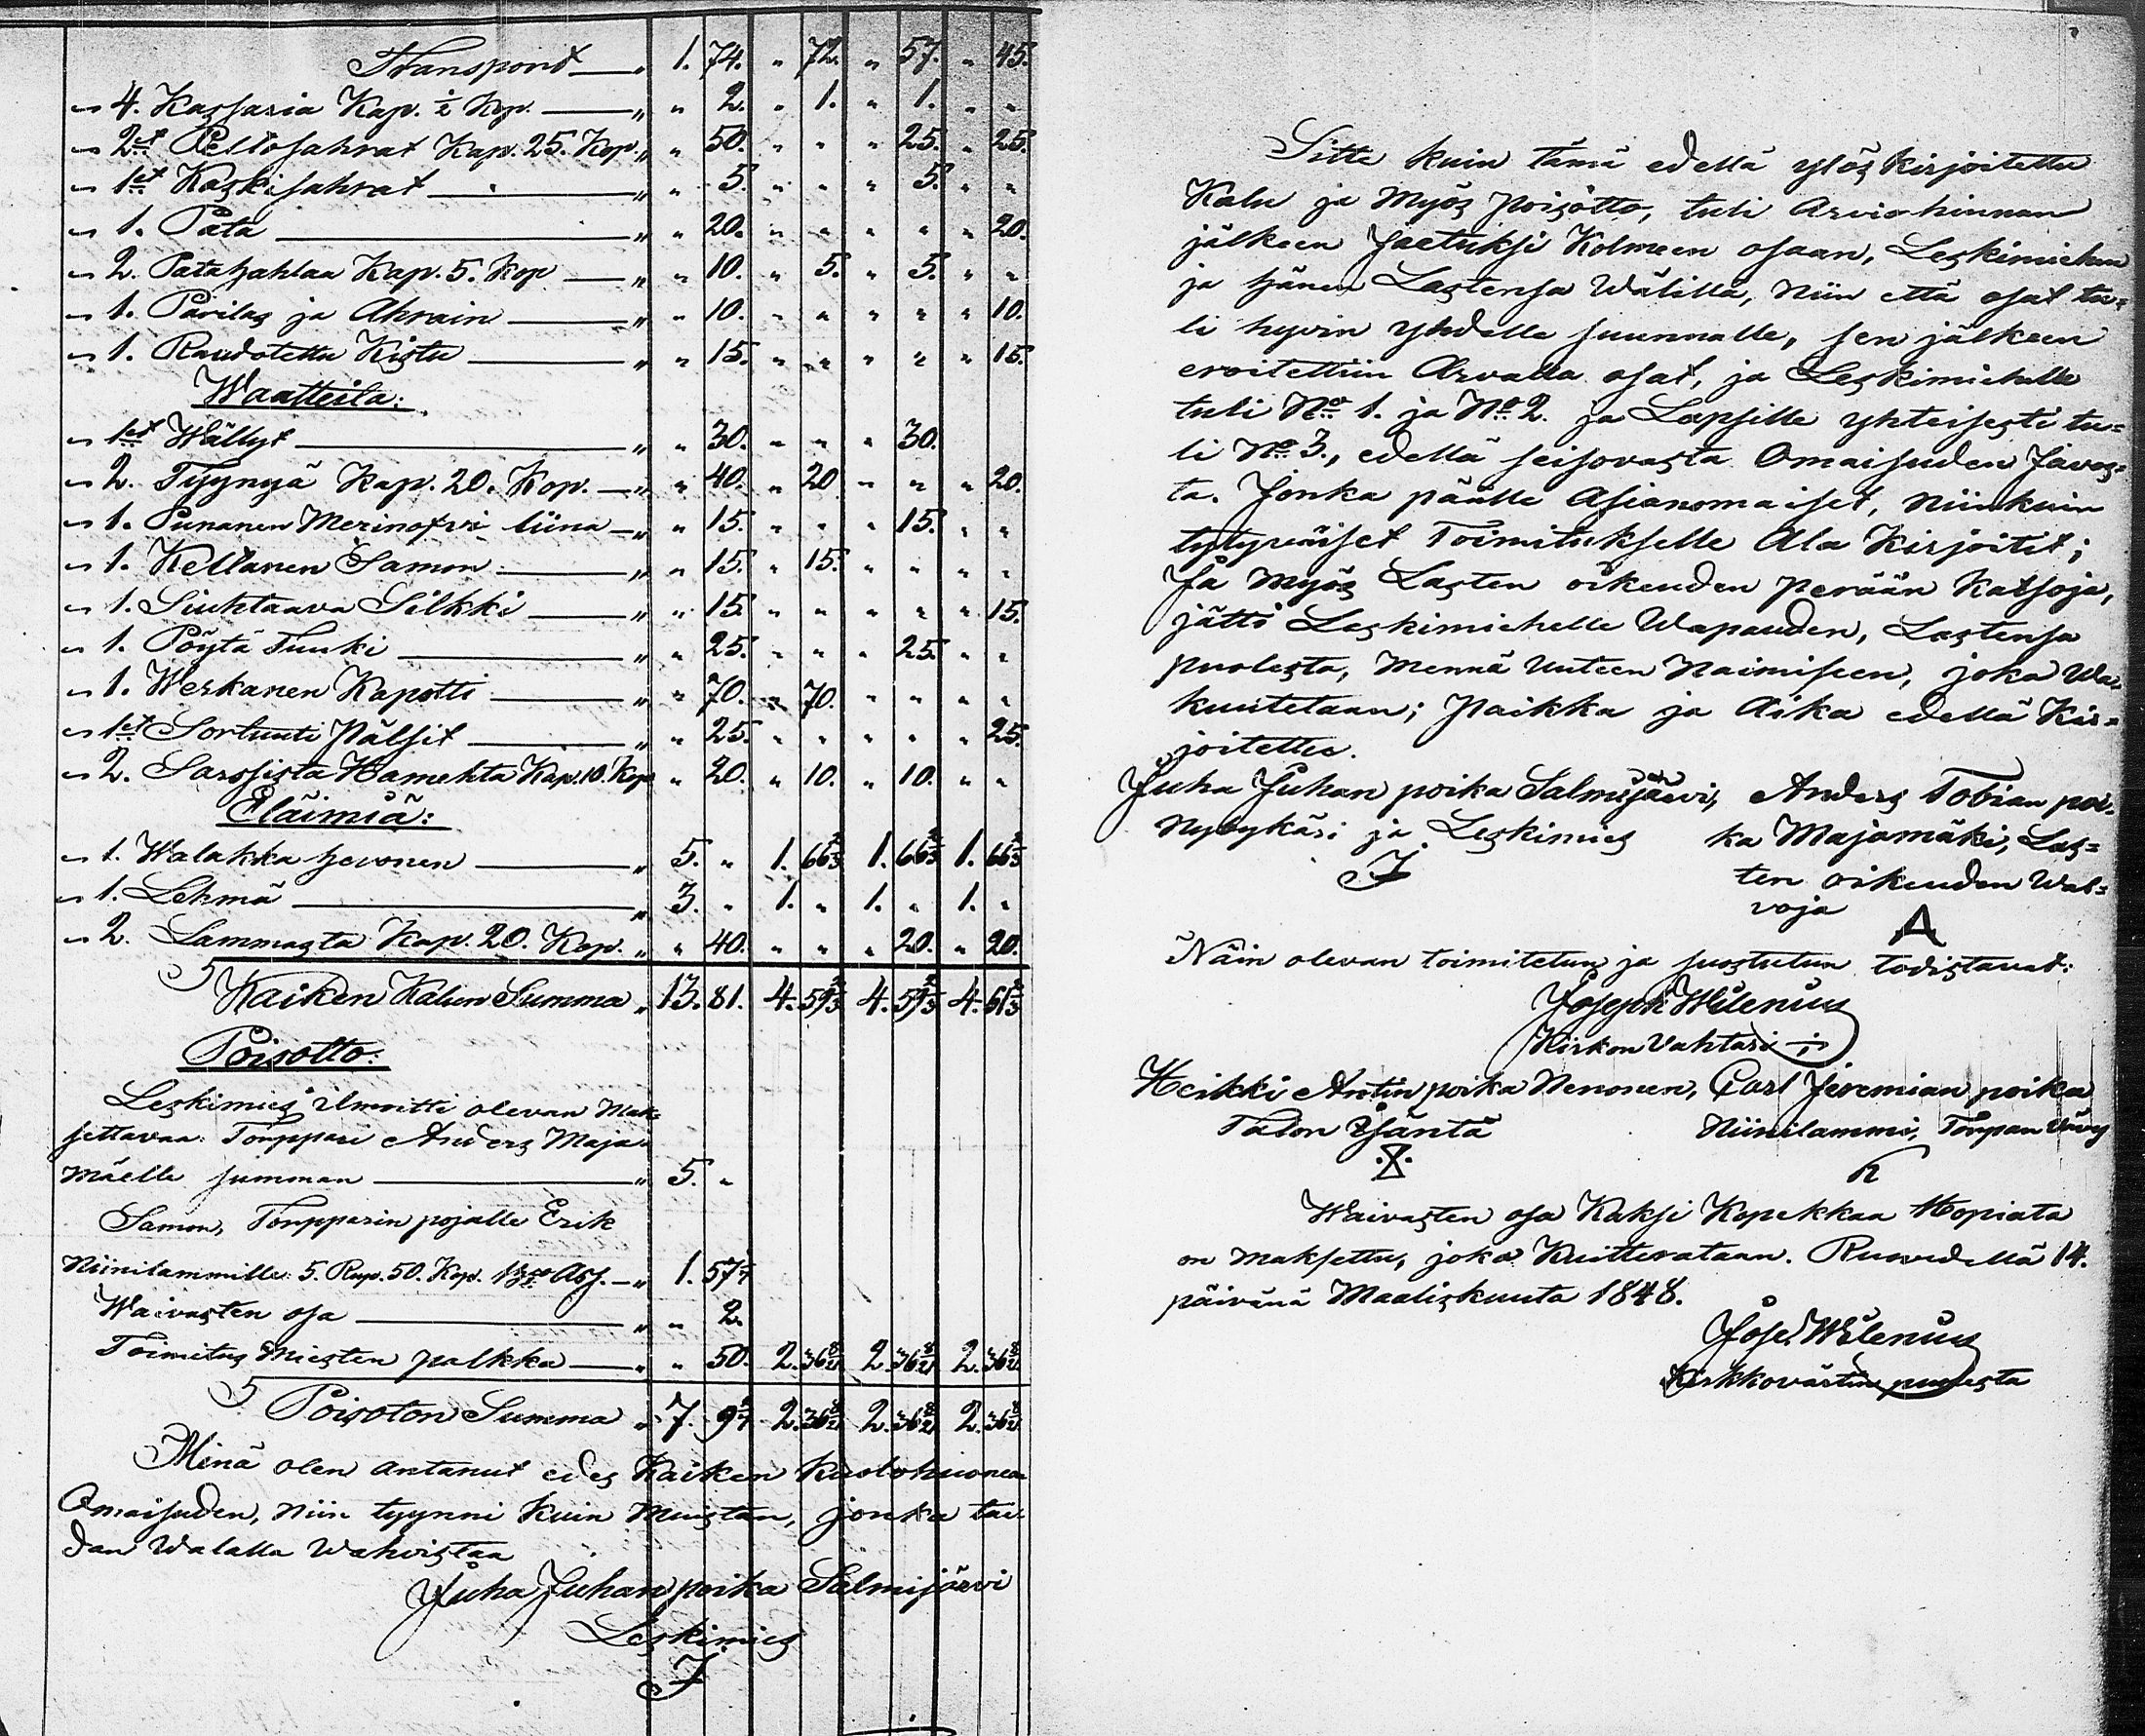 Transport — " 1. 74. " 72. " 57. " 45.
" 4. Kassaria Kap. ½ Kop. — " " 2. " 1. " 1. " "
" 2et Peltosahrat Kap. 25. Kop. " " 50. " " " 25. " 25.
" 1et Kaskisahrat — " " 5. " " " 5. " "
" 1. Pata — " " 20. " " " " " 20.
" 2. Patahahlaa Kap. 5. Kop — " " 10. " 5. " 5. " "
" 1. Parilas ja Ahrain — " " 10. " " " " " 10.
" 1. Raudotettu Kistu — " " 15. " " " " " 15.
Waatteita:
" 1et Wällyt — " " 30. " " " 30.
" 2. Tyynyä Kap. 20. Kop. — " " 40. " 20 " " " 20.
" 1. Punanen Merinofvi liina — " " 15. " " " 15. " "
" 1. Keltanen Samon — " " 15. " 15. " " " "
" 1. Liuhtaava Silkki — " " 15. " " " " " 15.
" 1. Pöytä Tuuki — " " 25. " " " 25. " "
" 1. Werkanen Kapotti — " " 70. " 70. " " " "
" 1et Sortuuti Pälsit — " " 25. " " " " " 25.
" 2. Sarssista Hamehta Kap. 10. Kop " 20. " 10. " 10. " "
Eläimiä:
" 1. Walakka hevonen — " 5. " 1. 66⅔ 1. 66⅔ 1. 66⅔
" 1. Lehmä — " 3. " 1. " 1. " 1. "
" 2. Lammasta Kap. 20. Kop. " " 40. " " " 20. " 20.
Kaiken Kalun Summa " 13. 81. 4. 59⅔ 4. 59⅔ 4. 61⅔
Poisotto:
Leskimies ilmoitti olevan Mak=
settavaa: Torppari Anders Maja=
mäelle summan — " 5. "
Samon, Torpparin pojalle Erik
Niinilammille 5. Rup. 50. Kop. Ass. — " 1. 57 1/7
Waivasten osa — " " 2.
Toimitus Miesten palkka — " " 50. 2. 36 8/21 2. 36 8/21 2. 36 8/21
Poisoton Summa " 7. 9 1/7 2. 36 8/21 2. 36 8/21 2. 36 8/21
Minä olen antanut edes Kaiken Kuolohuonen
Omaisuden, niin tyynni Kuin Muistan, jonka tai=
dan Walalla Wahvistaa
Juha Juhan poika Salmijärvi
Leskimies
J
Sitte kuin tämä edellä ylös kirjoitettu
Kalu ja Myös poisotto, tuli Arviohinnan
jälkeen Jaetuksi Kolmeen osaan, Leskimiehen
ja hänen Lastensa Wälillä, niin että osat tu=
li hyvin yhdelle suunnalle, sen jälkeen
eroitettiin Arvalla osat, ja Leskimiehelle
tuli No 1. ja No 2. ja Lapsille yhteisesti tu=
li No 3., edellä seisovasta Omaisuden Javos=
ta. Jonka päälle Asianomaiset, niinkuin
tytyväiset Toimitukselle Ala Kirjoitit;
Ja Myös Lasten oikeuden perään Katsoja,
jätti Leskimiehelle Wapauden, Lastensa
puolesta, mennä Uuteen Naimiseen, joka Wa=
kuutetaan; paikka ja Aika edellä Kir=
joitettu.
Juha Juhan poika Salmijärvi, Anders Tobian poi=
Nybykäri ja Leskimies ka Majamäki, Las=
J ten oikeuden Wal=
voja A
Näin olevan toimitetun ja suostutun todistavat:
Joseph Wilenius
Kirkon Vahtari
Heikki Antin poika Nenonen, Carl Jeremian poika
Talon Isäntä Niinilammi, Torpan Vävy
Waivasten osa Kaksi Kopekkaa Hopiata
on Maksettu, joka Kuitterataan. Ruovedellä 14.
päivänä Maaliskuuta 1848.
Jose. Wilenius
Kirkkovärtin puolesta